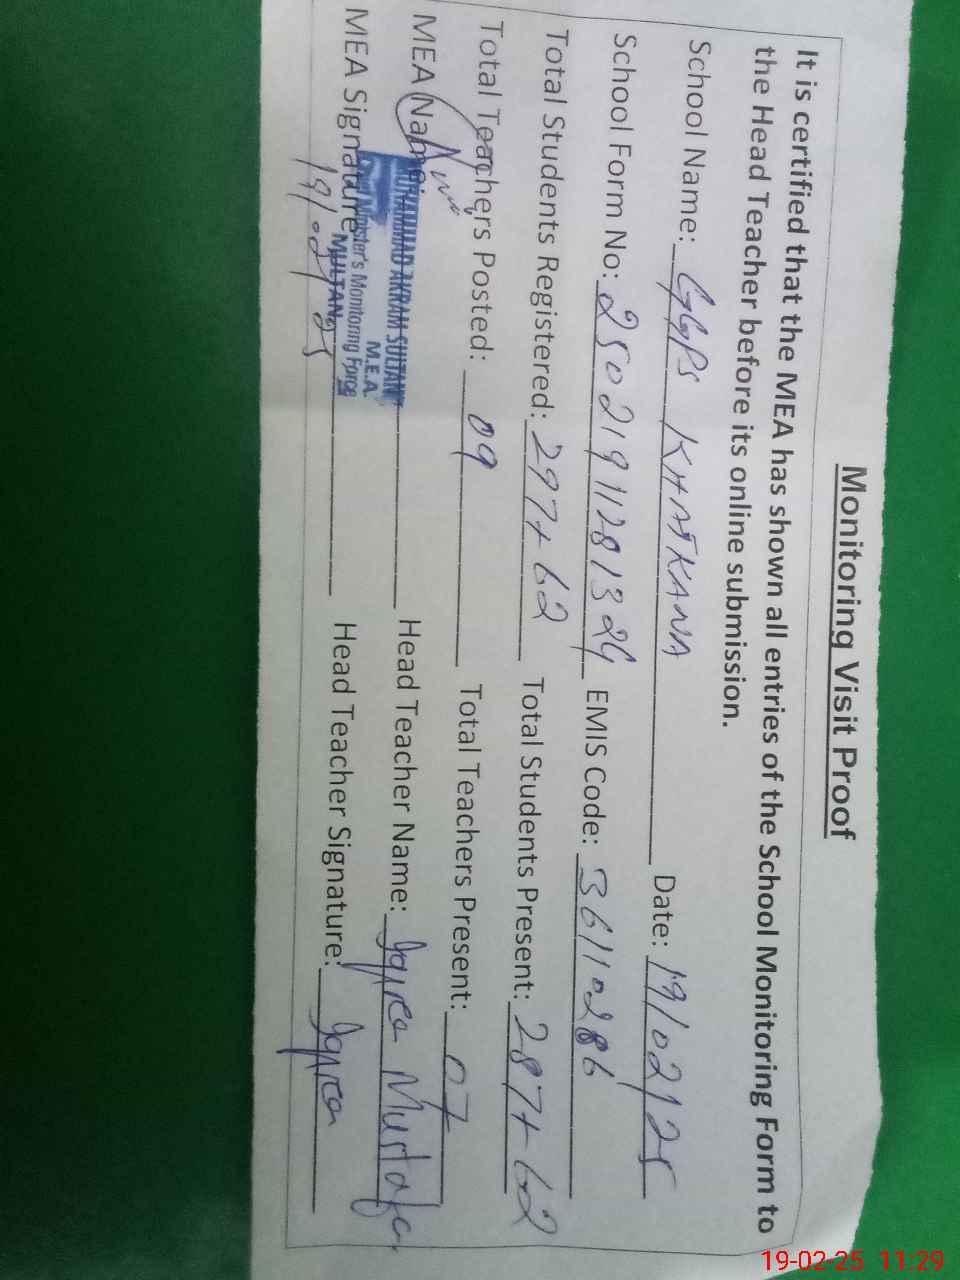 Monitoring Visit Proof
It is certified that the MEA has shown all entries of the School Monitoring Form to
the Head Teacher before its online submission.
School Name: GGPS KHATKANA Date: 19/02/25
School Form No: 25021911281324 EMIS Code: 36110286
Total Students Registered: 297+62 Total Students Present: 287+62
Total Teachers Posted: 09 Total Teachers Present: 07
MEA Name: MUHAMMAD AKRAM SULTAN Head Teacher Name: Mustafa
M.E.A.
Chief Minister's Monitoring Force
MEA Signature MULTAN Head Teacher Signature:
19/02/25
19-02-25 11:29